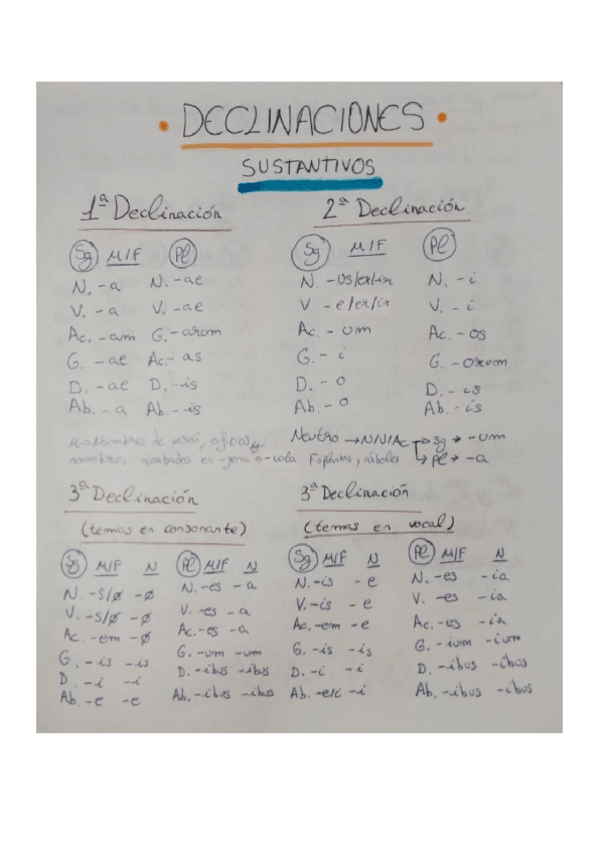 DECLINACIONES
SUSTANTIVOS
1ª Declinación
Sg M/F Pl
N. -a N. -ae
V. -a V. -ae
Ac. -am G. -arum
G. -ae Ac.- as
D. -ae D. -is
Ab. -a Ab. -is
M→Nombres de varón, oficios y
nombres acabados en -gena o -cola
2ª Declinación
Sg M/F Pl
N. -us/er/ir N. -i
V. -e/er/ir V. -i
Ac. - um Ac. - os
G. - i G. -orum
D. - o D. - is
Ab. - o Ab. - is
Neutro → N/V/Ac → Sg → -um
→ Pl → -a
F→plantas, árboles
3ª Declinación
(temas en consonante)
Sg M/F N Pl M/F N
N. -s/ø -ø N. -es -a
V. -s/ø -ø V. -es -a
Ac. -em -ø Ac. -es -a
G. -is -is G. -um -um
D. -i -i D. -ibus -ibus
Ab. -e -e Ab. -ibus -ibus
3ª Declinación
(temas en vocal)
Sg M/F N Pl M/F N
N. -is - e N. -es -ia
V. -is - e V. -es -ia
Ac. -em -e Ac. -es -ia
G. -is -is G. -ium -ium
D. -i -i D. -ibus -ibus
Ab. -e/i -i Ab. -ibus -ibus